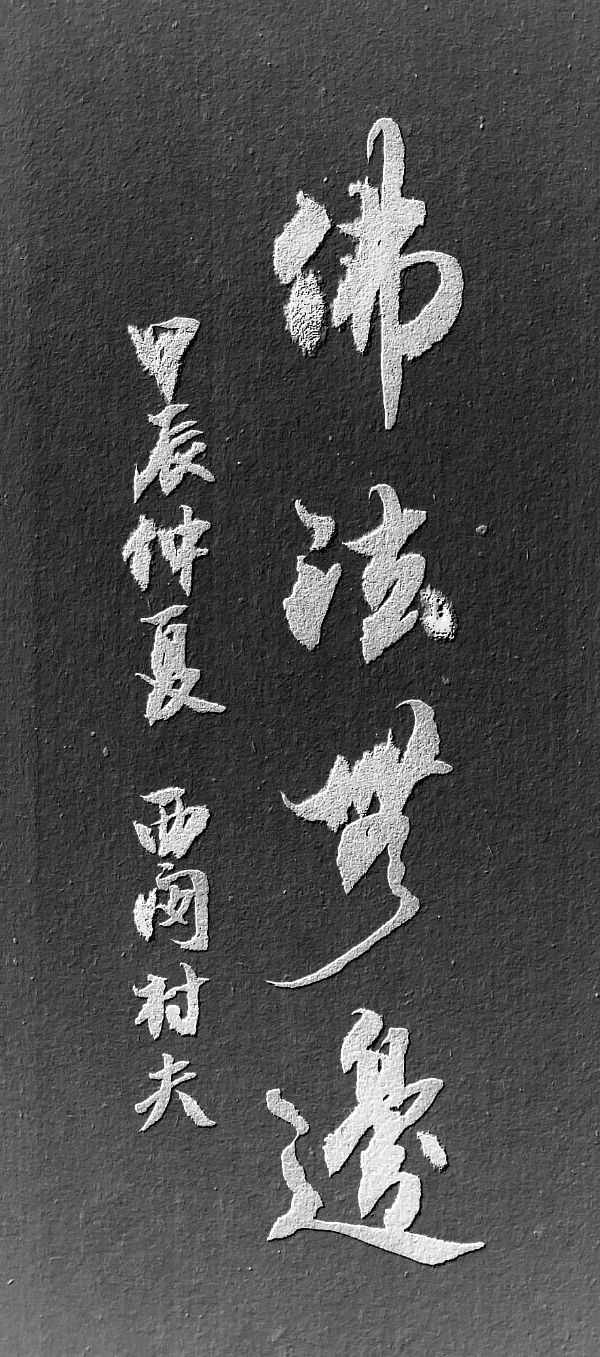 佛法無邊
甲辰仲夏 西閔村夫